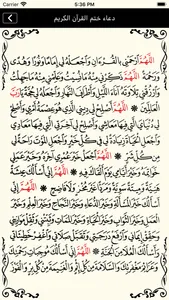 5:36 PM
دعاء ختم القرآن الكريم
اللَّهُمَّ ارْحَمْنِي بِالْقُرْآنِ وَاجْعَلْهُ لِي إِمَامًا وَنُورًا وَهُدًى
وَرَحْمَةً اللَّهُمَّ ذَكِّرْنِي مِنْهُ مَا نَسِيتُ وَعَلِّمْنِي مِنْهُ مَا جَهِلْتُ
وَارْزُقْنِي تِلَاوَتَهُ آنَاءَ اللَّيْلِ وَأَطْرَافَ النَّهَارِ وَاجْعَلْهُ لِي حُجَّةً يَا رَبَّ
الْعَالَمِينَ اللَّهُمَّ أَصْلِحْ لِي دِينِي الَّذِي هُوَ عِصْمَةُ أَمْرِي وَأَصْلِحْ
لِي دُنْيَايَ الَّتِي فِيهَا مَعَاشِي وَأَصْلِحْ لِي آخِرَتِي الَّتِي فِيهَا مَعَادِي
وَاجْعَلِ الْحَيَاةَ زِيَادَةً لِي فِي كُلِّ خَيْرٍ وَاجْعَلِ الْمَوْتَ رَاحَةً لِي
مِنْ كُلِّ شَرٍّ اللَّهُمَّ اجْعَلْ خَيْرَ عُمْرِي آخِرَهُ وَخَيْرَ عَمَلِي
خَوَاتِمَهُ وَخَيْرَ أَيَّامِي يَوْمَ أَلْقَاكَ فِيهِ اللَّهُمَّ إِنِّي أَسْأَلُكَ عِيشَةً
هَنِيَّةً وَمِيتَةً سَوِيَّةً وَمَرَدًّا غَيْرَ مُخْزٍ وَلَا فَاضِحٍ اللَّهُمَّ إِنِّي
أَسْأَلُكَ خَيْرَ الْمَسْأَلَةِ وَخَيْرَ الدُّعَاءِ وَخَيْرَ النَّجَاحِ وَخَيْرَ الْعِلْمِ وَخَيْرَ
الْعَمَلِ وَخَيْرَ الثَّوَابِ وَخَيْرَ الْحَيَاةِ وَخَيْرَ الْمَمَاتِ وَثَبِّتْنِي وَثَقِّلْ مَوَازِينِي
وَحَقِّقْ إِيمَانِي وَارْفَعْ دَرَجَتِي وَتَقَبَّلْ صَلَاتِي وَاغْفِرْ خَطِيئَاتِي
وَأَسْأَلُكَ الْعُلَا مِنَ الْجَنَّةِ اللَّهُمَّ إِنِّي أَسْأَلُكَ مُوجِبَاتِ رَحْمَتِكَ
وَعَزَائِمَ مَغْفِرَتِكَ وَالسَّلَامَةَ مِنْ كُلِّ إِثْمٍ وَالْغَنِيمَةَ مِنْ كُلِّ بِرٍّ وَالْفَوْزَ